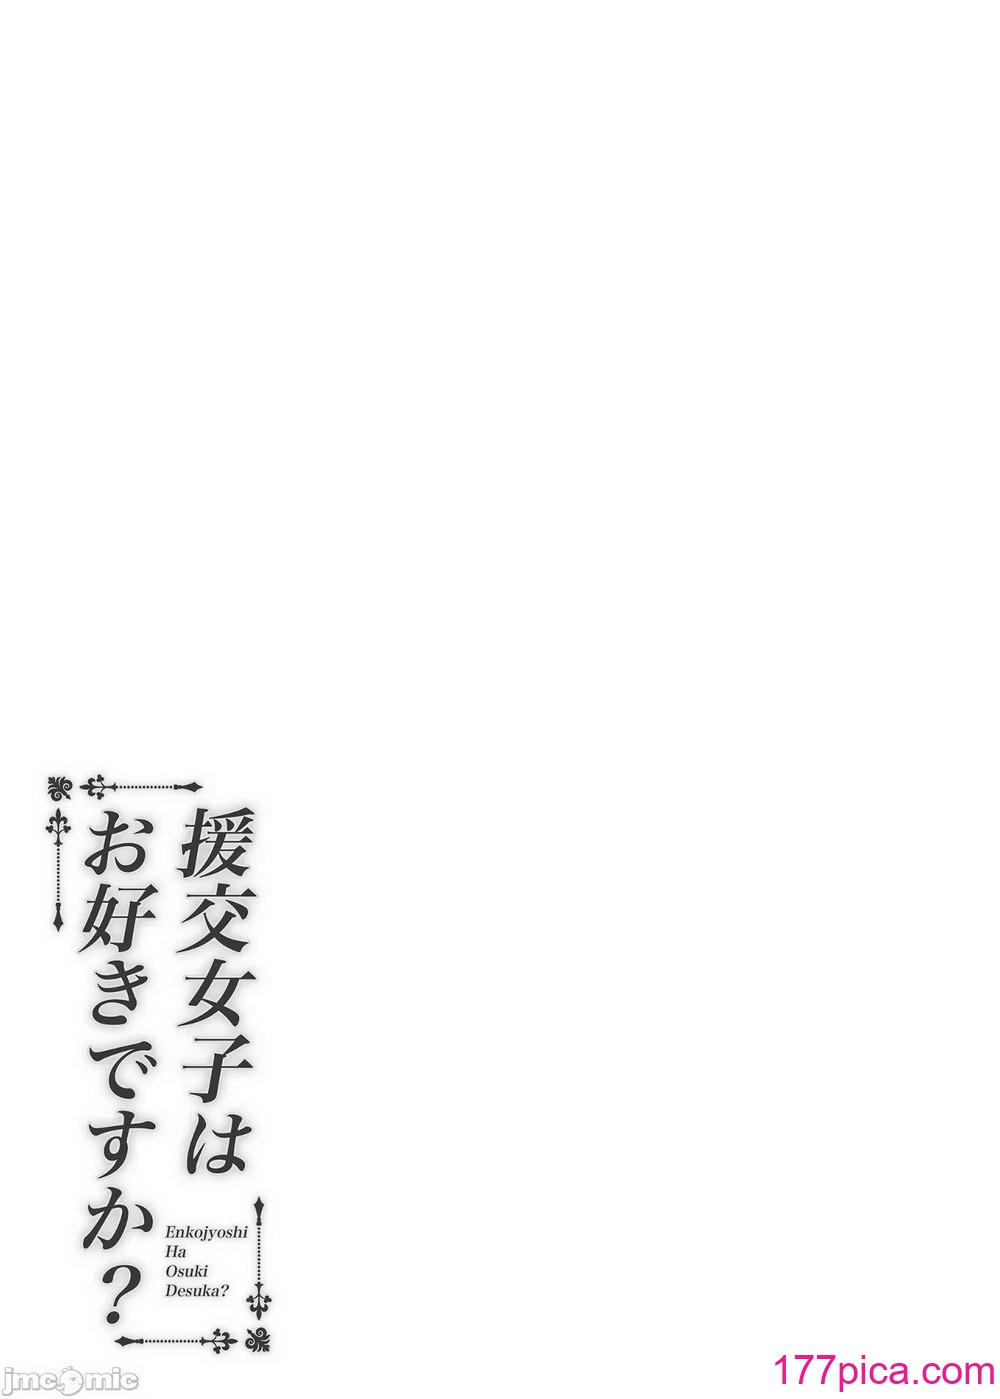 援交女子は
お好きですか?
Enkojyoshi
Ha
Osuki
Desuka?
jmcomic
177pica.com